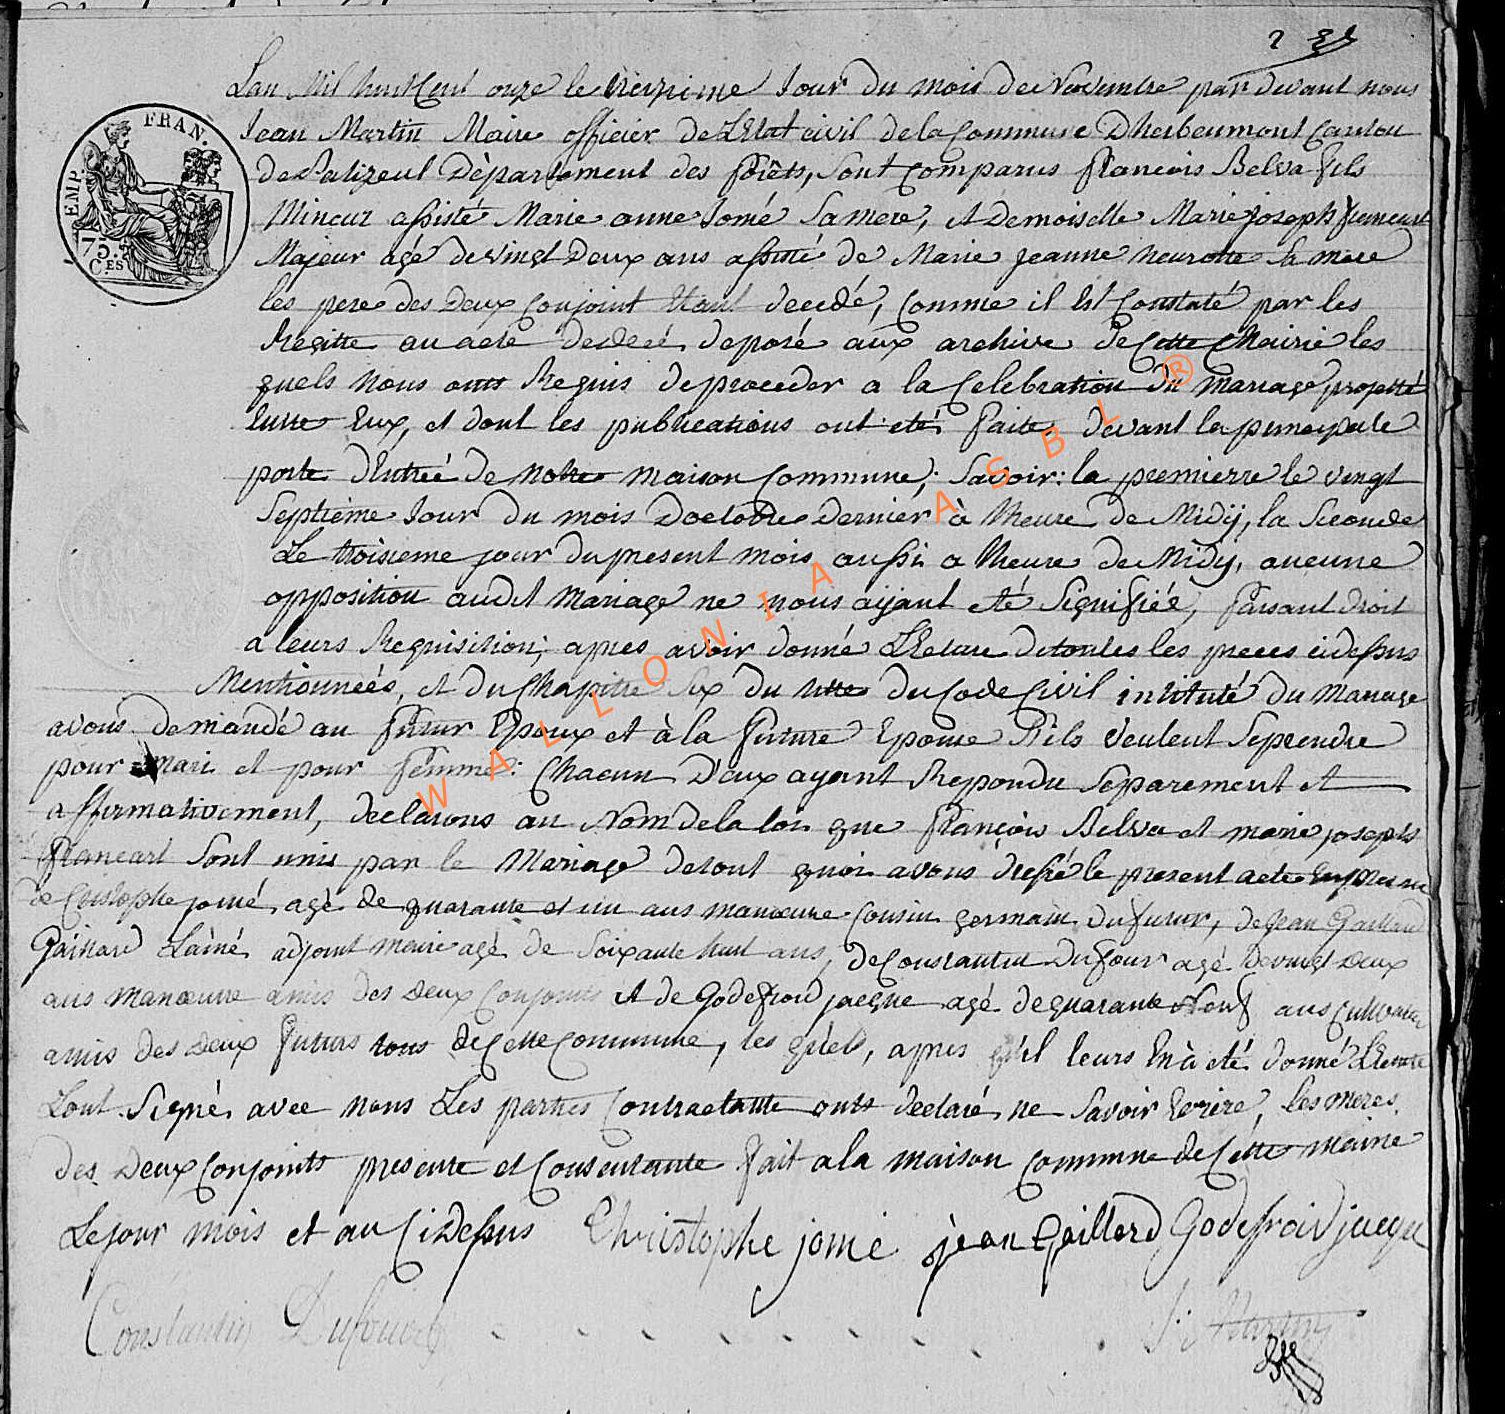 2 35
Lan Mil huit Cent onze le treizieme Jour du mois de Novembre par devant nous
Jean Martin Maire officier de LEtat civil de la Commune Dherbeumont Canton
de Palizeul Départément des Forêts, sont comparus François Belva fils
Mineur assisté Marie anne Jomé sa mere, et Demoiselle Marie joseph francart
Majeur agé de vingt Deux ans assisté de Marie jeanne neurotte sa mere
les pere des Deux Conjoint Etant decedé, comme il Est Constaté par les
Registre au acte de decé deposé aux archive de Cette Mairie les
quels nous onts Requis de proceder a la Celebration du mariage projetté
Entre Eux, et dont les publications ont eté faite devant la principale
porte d'Entreé de Notre maison Commune; Savoir: la premierre le vingt
Septieme Jour du mois Doctobre Dernier à lheure de Midij, la Seconde
Le troisieme jour du present mois aussi a lheure de Midy, aucune
opposition audit Mariage ne nous aijant eté Signifiée, faisant droit
a leurs Requisition; apres avoir donné LEcture de toutes les pieces cidessus
Mentionneés, et du Chapitre Six du titre du Code Civil intitulé du Mariage
avons demandé au futur Epoux et à la future Epouse S'ils veulent Seprendre
pour mari et pour femme: Chacun D'eux ayant Repondu Séparement et
affirmativement, declarons au Nom de la loi que François Belva et marie joseph
francart Sont unis par le Mariage de tout quoi avons dressé le present acte En presence
de Cristophe jomé, agé de quarante et un ans manœuvre Cousin germain du futur, de Jean Gaillard
Gaillard Lainé adjoint maire agé de soixante huit ans, de Constantin Dufour agé de vingt Deux
ans manœuvre amis des Deux Conjoints et de Godefroid jacque agé de quarante Neuf ans Cultivateur
amis des Deux futurs tous de Cette Commune, les quels, apres qu'il leurs En à eté donné LEcture
Lont Signé avec nous Les parties Contractante onts declaré ne Savoir Ecrire, les meres
des Deux Conjoints presente et Consentante fait a la maison commune de Cette mairie
Le jour mois et an Ci Dessus Christophe jomé jean Gaillard Godefroid jacque
Constantin Dufour J: Martin
FRAN.
EMP.
75.
C.ES
WALLONIA ASBL ®